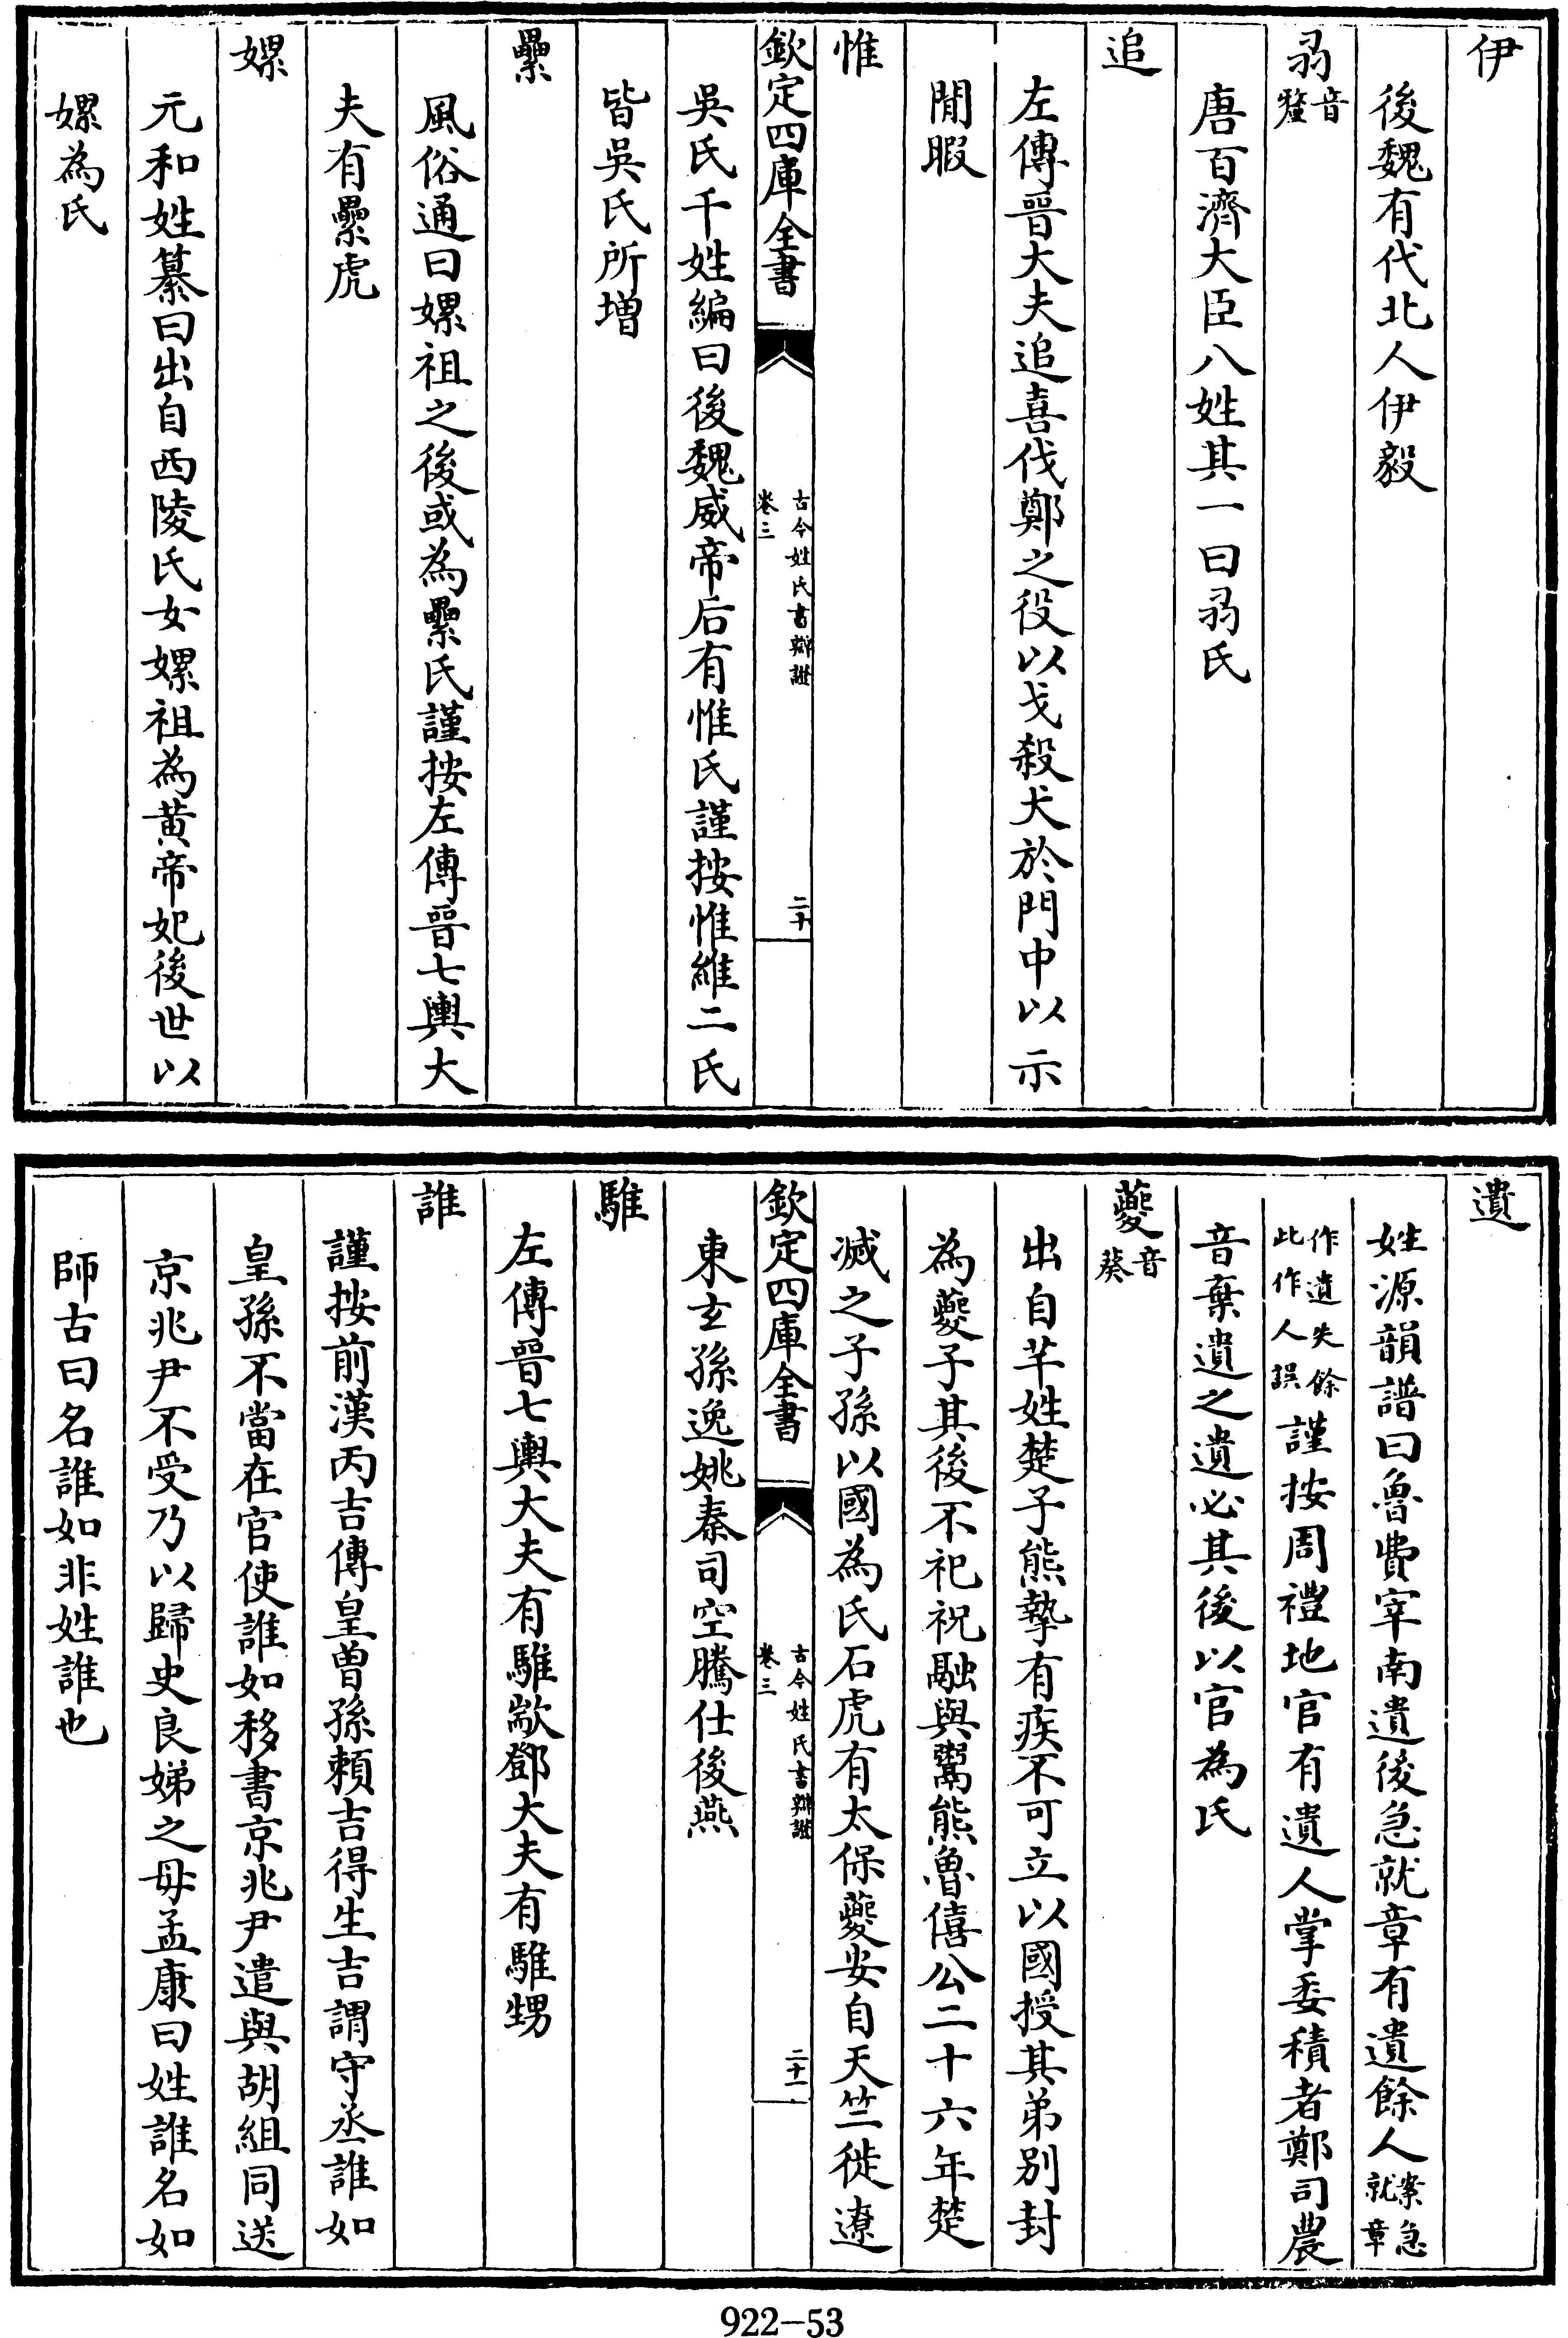 伊
後魏有代北人伊毅
刕音釐
唐百濟大臣八姓其一曰刕氏
追
左傳晉大夫追喜伐鄭之役以戈殺犬於門中以示
閒暇
惟
欽定四庫全書
古今姓氏書辯證
卷三
二十
吳氏千姓編曰後魏威帝后有惟氏謹按惟維二氏
皆吳氏所增
纍
風俗通曰嫘祖之後或為纍氏謹按左傳晉七輿大
夫有纍虎
嫘
元和姓纂曰出自西陵氏女嫘祖為黄帝妃後世以
嫘為氏
遺
姓源韻譜曰魯費宰南遺後急就章有遺餘人案急就章
作遺失餘此作人誤謹按周禮地官有遺人掌委積者鄭司農
音棄遺之遺必其後以官為氏
夔音葵
出自芊姓楚子熊摯有疾不可立以國授其弟別封
為夔子其後不祀祝融與鬻熊魯僖公二十六年楚
滅之子孫以國為氏石虎有太保夔安自天竺徙遼
欽定四庫全書
古今姓氏書辯證
卷三
二十一
東玄孫逸姚秦司空騰仕後燕
騅
左傳晉七輿大夫有騅歂鄧大夫有騅甥
誰
謹按前漢丙吉傳皇曽孫頼吉得生吉謂守丞誰如
皇孫不當在官使誰如移書京兆尹遣與胡組同送
京兆尹不受乃以歸史良娣之母孟康曰姓誰名如
師古曰名誰如非姓誰也
922-53